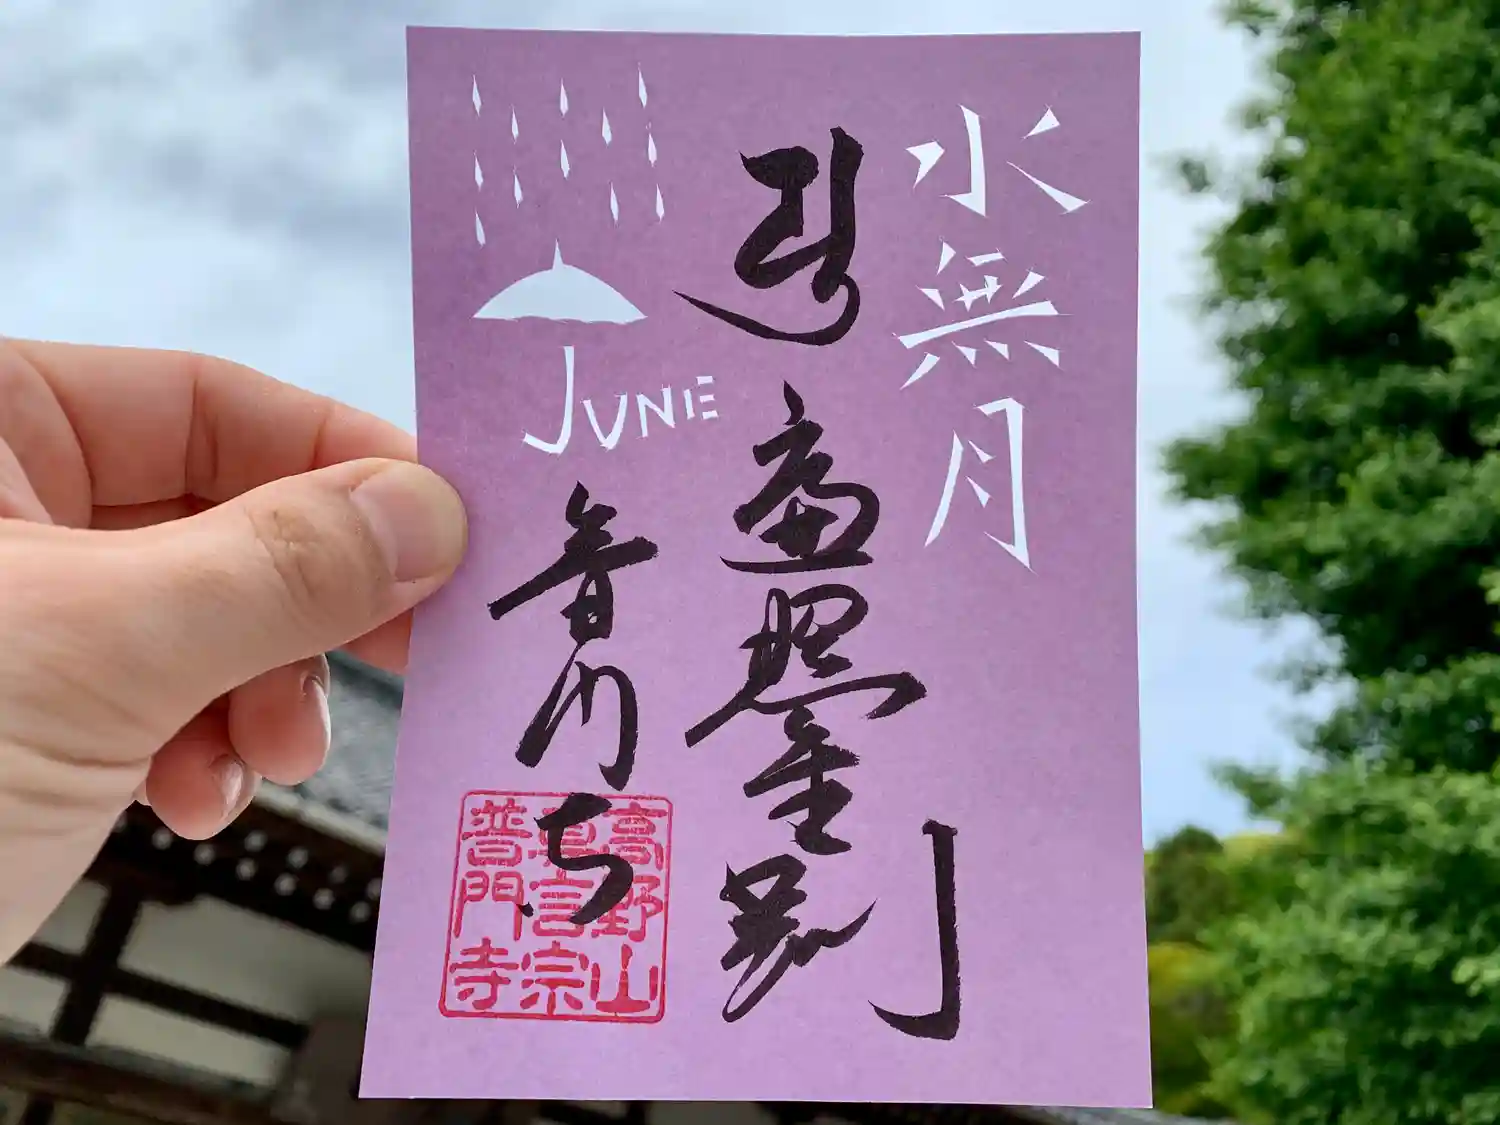 水無月
遍照金剛
JUNE
普門寺
高野山
真言宗
普門寺